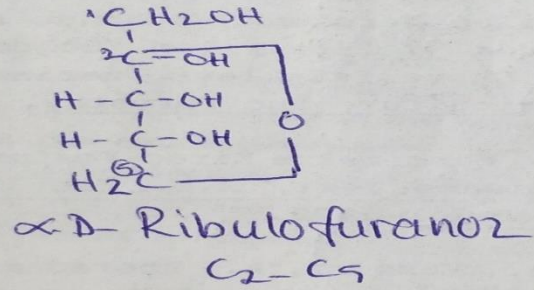 ¹CH2OH
²C-OH
H-C-OH
O
H-C-OH
H2⑤C
α-D-Ribulofuranoz
C2-C5